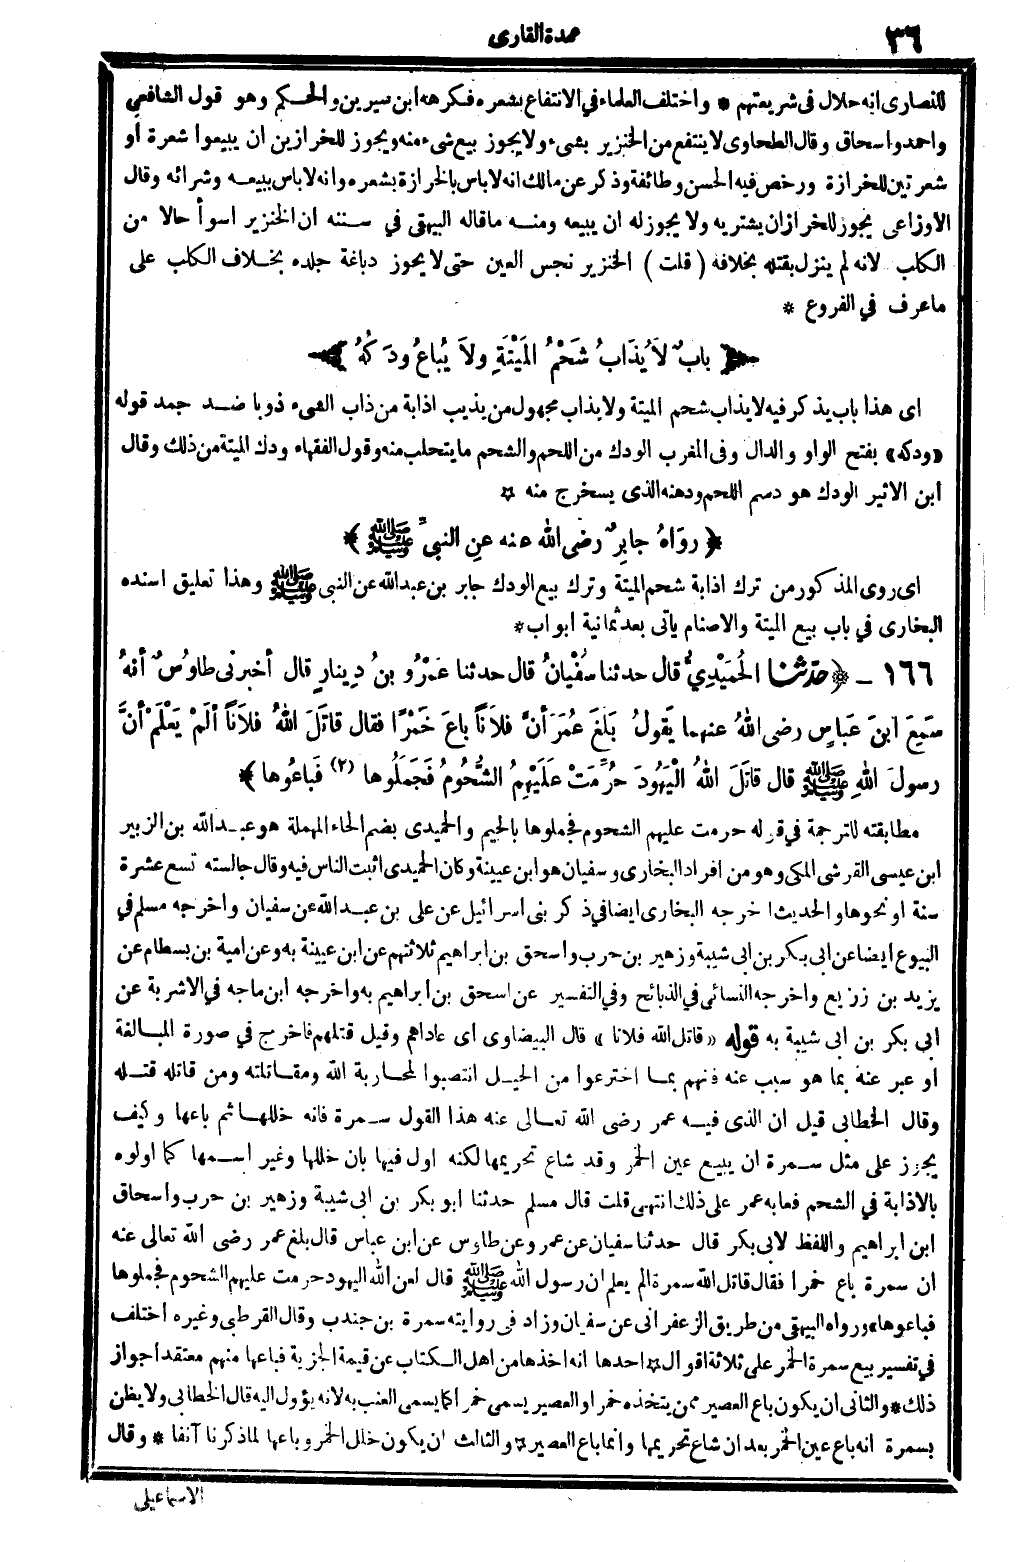 ٣٦
عمدة القارى
للنصارى انه حلال فى شريعتهم * واختلف العلماء في الانتفاع بشعره فكرهه ابن سيرين والحكم وهو قول الشافعي
واحمد واسحاق وقال الطحاوى لا ينتفع من الخنزير بشىء ولا يجوز بيع شىء منه ويجوز للخرازين ان يبيعوا شعرة أو
شعرتين للخرازة ورخص فيه الحسن وطائفة وذكر عن مالك انه لاباس بالخرازة بشعره وانه لاباس ببيعه وشرائه وقال
الأوزاعى يجوز للخراز ان يشتريه ولا يجوز له ان يبيعه ومنه ماقاله البيهقى في سننه ان الخنزير اسوأ حالا من
الكلب لانه لم ينزل بقتله بخلافه ( قلت ) الخنزير نجس العين حتى لايجوز دباغة جلده بخلاف الكلب على
ماعرف في الفروع *
﴿ بابٌ لاَ يُذَابُ شَحْمُ المَيْتَةِ ولاَ يُباعُ ودَكُهُ ﴾
اى هذا باب يذكر فيه لا يذاب شحم الميتة ولا يذاب مجهول من يذيب اذابة من ذاب الشىء ذوبا ضد جمد قوله
«ودكه» بفتح الواو والدال وفى المغرب الودك من اللحم والشحم ما يتحلب منه وقول الفقهاء ودك الميتة من ذلك وقال
ابن الاثير الودك هو دسم اللحم ودهنه الذى يسخرج منه *
﴿ روَاهُ جابِرٌ رضى الله عنه عنِ النبىِّ ﷺ ﴾
اى روى المذكور من ترك اذابة شحم الميتة وترك بيع الودك جابر بن عبد الله عن النبى ﷺ وهذا تعليق اسنده
البخارى في باب بيع الميتة والاصنام يأتى بعد ثمانية ابواب *
١٦٦ ـ ﴿ حدّثنا الحُمَيْدِيُّ قال حدثنا سفْيانُ قال حدثنا عَمْرُو بنُ دِينارٍ قال أخبرنى طاوُسٌ أنهُ
سَمِعَ ابنَ عبَاسٍ رضى اللهُ عنهما يَقولُ بَلَغَ عُمَرَ أنَّ فلاَناً باعَ خَمْرًا فقال قاتَلَ اللهُ فلاَناً ألَمْ يَعْلَمْ أنَّ
رسولَ اللهِ ﷺ قال قاتَلَ اللهُ الْيَهُودَ حُرِّمَتْ عَلَيْهِمُ الشُّحُومُ فَجَمَلُوها (٢) فَباعُوها ﴾
مطابقته للترجمة في قوله حرمت عليهم الشحوم فجملوها بالجيم والحميدى بضم الحاء المهملة هو عبد الله بن الزبير
ابن عيسى القرشى المكى وهو من افراد البخارى وسفيان هو ابن عيينة وكان الحميدى اثبت الناس فيه وقال جالسته تسع عشرة
سنة او نحوها والحديث اخرجه البخارى ايضا في ذكر بنى اسرائيل عن على بن عبد الله عن سفيان واخرجه مسلم في
البيوع ايضا عن ابى بكر بن ابى شيبة وزهير بن حرب واسحق بن ابراهيم ثلاثتهم عن ابن عيينة به وعن امية بن بسطام عن
يزيد بن زريع واخرجه النسائى في الذبائح وفي التفسير عن اسحق بن ابراهيم به واخرجه ابن ماجه في الاشربة عن
ابى بكر بن ابى شيبة به قوله «قاتل الله فلانا» قال البيضاوى اى عاداهم وقيل قتلهم فاخرج في صورة المبالغة
او عبر عنه بما هو سبب عنه فنهم بما اخترعوا من الحيل انتصبوا لمحاربة الله ومقاتلته ومن قاتله قتله
وقال الخطابى قيل ان الذى فيه عمر رضى الله تعالى عنه هذا القول سمرة فانه خللها ثم باعها وكيف
يجوز على مثل سمرة ان يبيع عين الخمر وقد شاع تحريمها لكنه اول فيها بان خللها وغير اسمها كما اولوه
بالاذابة في الشحم فعابه عمر على ذلك انتهى قلت قال مسلم حدثنا ابو بكر بن ابى شيبة وزهير بن حرب واسحاق
ابن ابراهيم واللفظ لابى بكر قال حدثنا سفيان عن عمرو عن طاوس عن ابن عباس قال بلغ عمر رضى الله تعالى عنه
ان سمرة باع خمرا فقال قاتل الله سمرة الم يعلم ان رسول الله ﷺ قال لعن الله اليهود حرمت عليهم الشحوم فجملوها
فباعوها» ورواه البيهقى من طريق الزعفرانى عن سفيان وزاد في روايته سمرة بن جندب وقال القرطبى وغيره اختلف
في تفسير بيع سمرة الخمر على ثلاثة اقوال * احدها انه اخذها من اهل الكتاب عن قيمة الجزية فباعها منهم معتقدا جواز
ذلك * والثانى ان يكون باع العصير ممن يتخذه خمرا والعصير يسمى خمرا كما يسمى العنب به لانه يؤول اليه قال الخطابى ولا يظن
بسمرة انه باع عين الخمر بعد ان شاع تحريمها وانما باع العصير * والثالث ان يكون خلل الخمر وباعها لما ذكرنا آنفا * وقال
الاسماعيلى